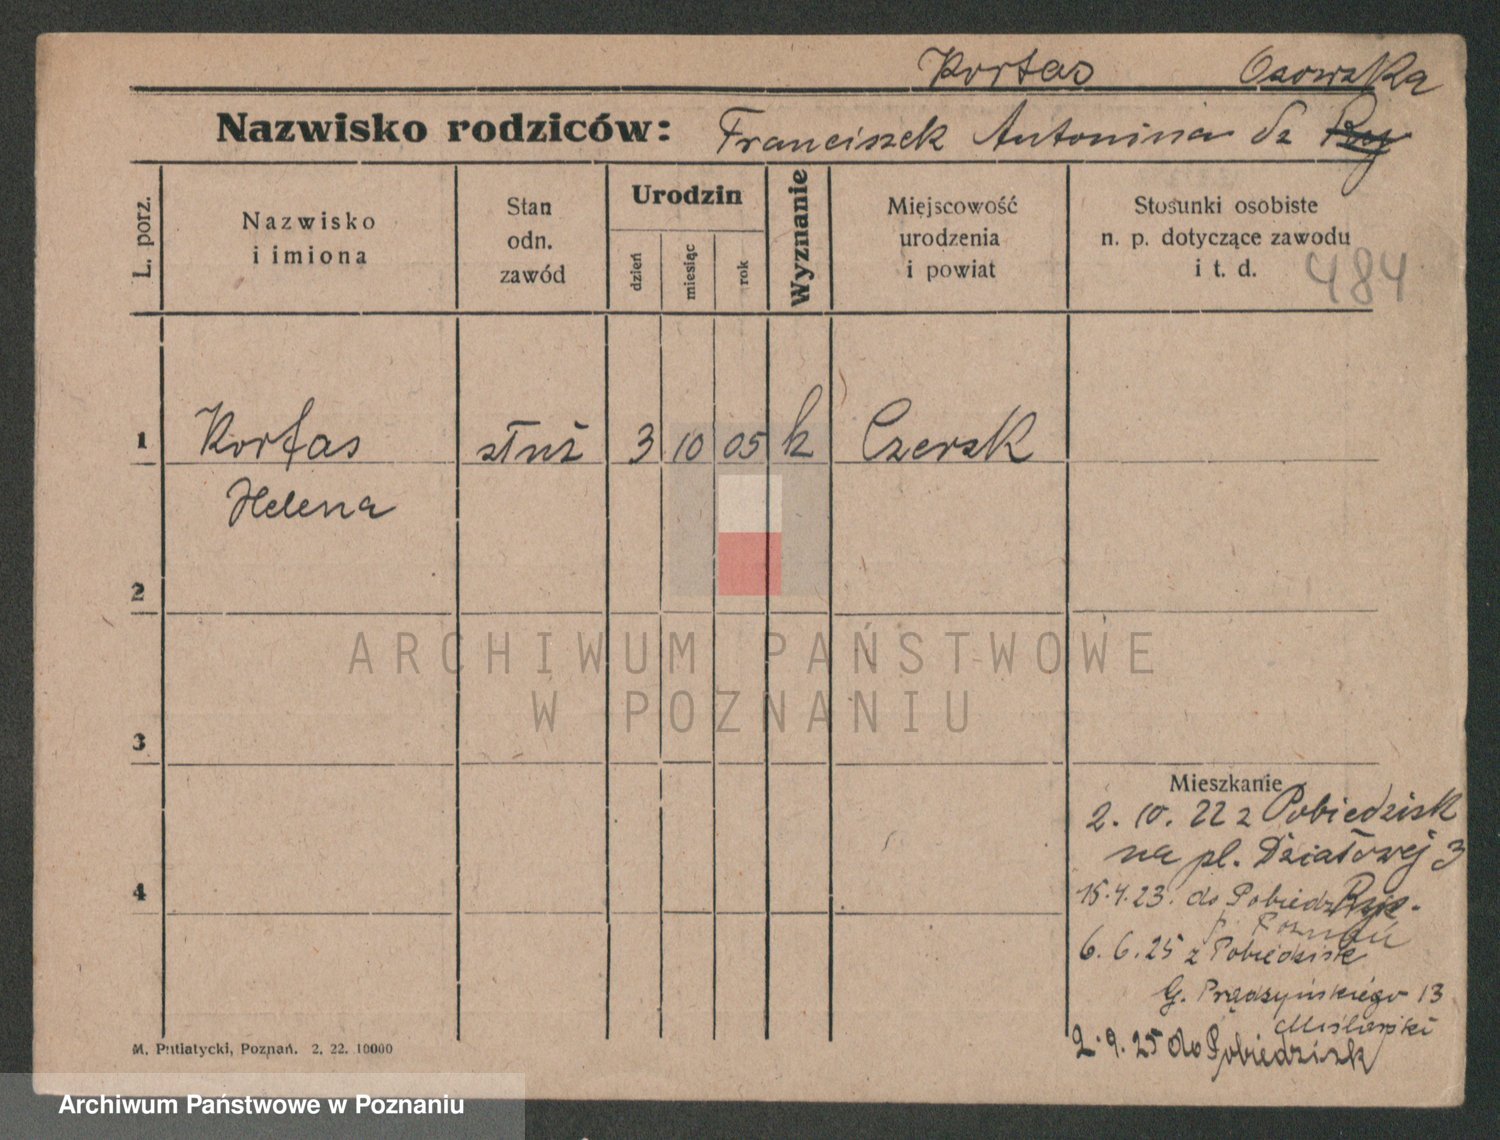 Kortas Osowska
Nazwisko rodziców: Franciszek Antonina dz
L. porz.
Nazwisko
i imiona
Stan
odn.
zawód
Urodzin
dzień
miesiąc
rok
Wyznanie
Miejscowość
urodzenia
i powiat
Stosunki osobiste
n. p. dotyczące zawodu
i t. d.
484
1 Kortas służ 3 10 05 k Czersk
Helena
2
ARCHIWUM PAŃSTWOWE
W POZNANIU
3
Mieszkanie
2. 10. 22 z Pobiedzisk
na pl. Działowej 3
4
15.4.23. do Pobiedz
p. Poznań
6. 6. 25 z Pobiedzisk
G. Prądzyńskiego 13
2.9.25 do Pobiedzisk
M. Putiatycki, Poznań. 2. 22. 10000
Archiwum Państwowe w Poznaniu